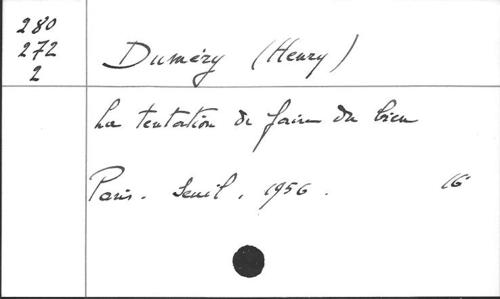 280
272
2
Duméry (Henry)
La tentation de faire du bien
Paris. Seuil, 1956. 16°